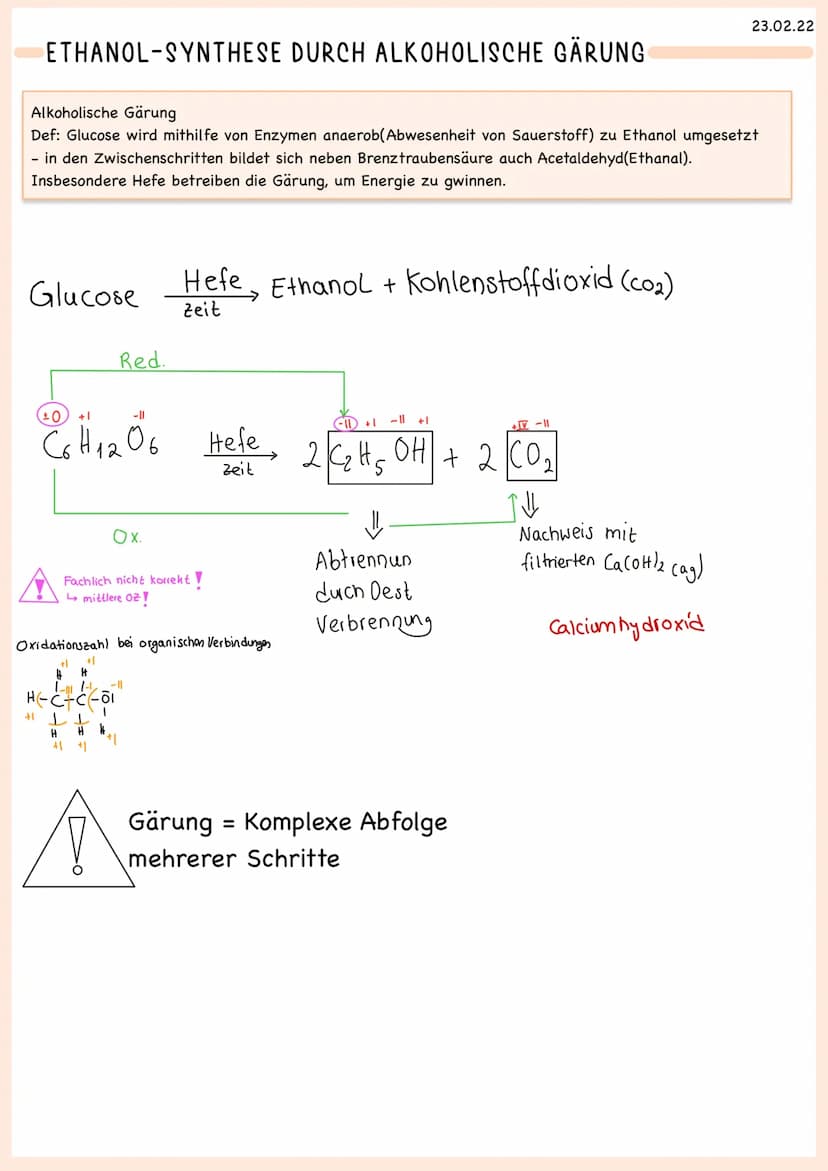 23.02.22
ETHANOL-SYNTHESE DURCH ALKOHOLISCHE GÄRUNG
Alkoholische Gärung
Def: Glucose wird mithilfe von Enzymen anaerob(Abwesenheit von Sauerstoff) zu Ethanol umgesetzt
- in den Zwischenschritten bildet sich neben Brenztraubensäure auch Acetaldehyd(Ethanal).
Insbesondere Hefe betreiben die Gärung, um Energie zu gewinnen.
Glucose Hefe zeit → Ethanol + Kohlenstoffdioxid (CO₂)
Red.
±0 +I -II -II +I -II +I +IV -II
C₆H₁₂O₆ Hefe zeit → 2 C₂H₅OH + 2 CO₂
Ox.
⇓ ⇓
Abtrennun
duch Dest
Verbrennung
Nachweis mit
filtrierten Ca(OH)₂ (aq)
Calciumhydroxid
! Fachlich nicht korrekt!
↳ mittlere OZ!
Oxidationszahl bei organischen Verbindungen
+I +I
H H
-III -I -II
H-C-C-O
+I
H H H
+I +I +I
! Gärung = Komplexe Abfolge
mehrerer Schritte